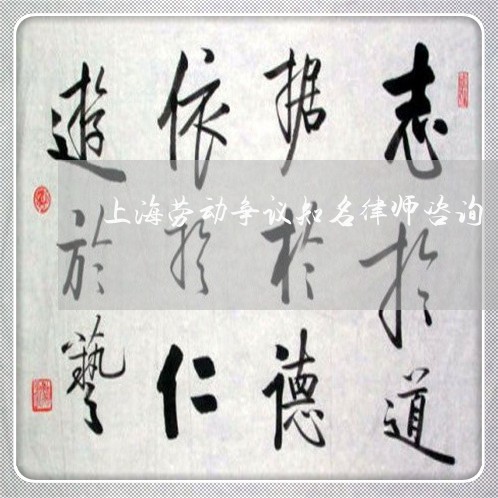 志扵道
据扵德
依扵仁
遊於藝
上海劳动争议知名律师咨询